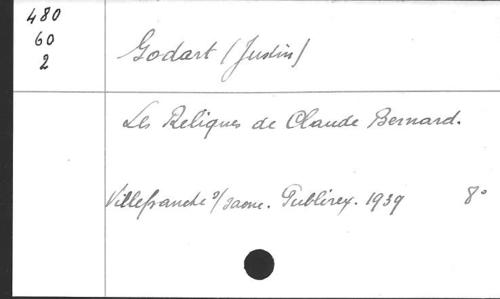 480
60
2
Godart (Justin)
Les Reliques de Claude Bernard.
Villefranche s/Saone. Publirex. 1939 8°